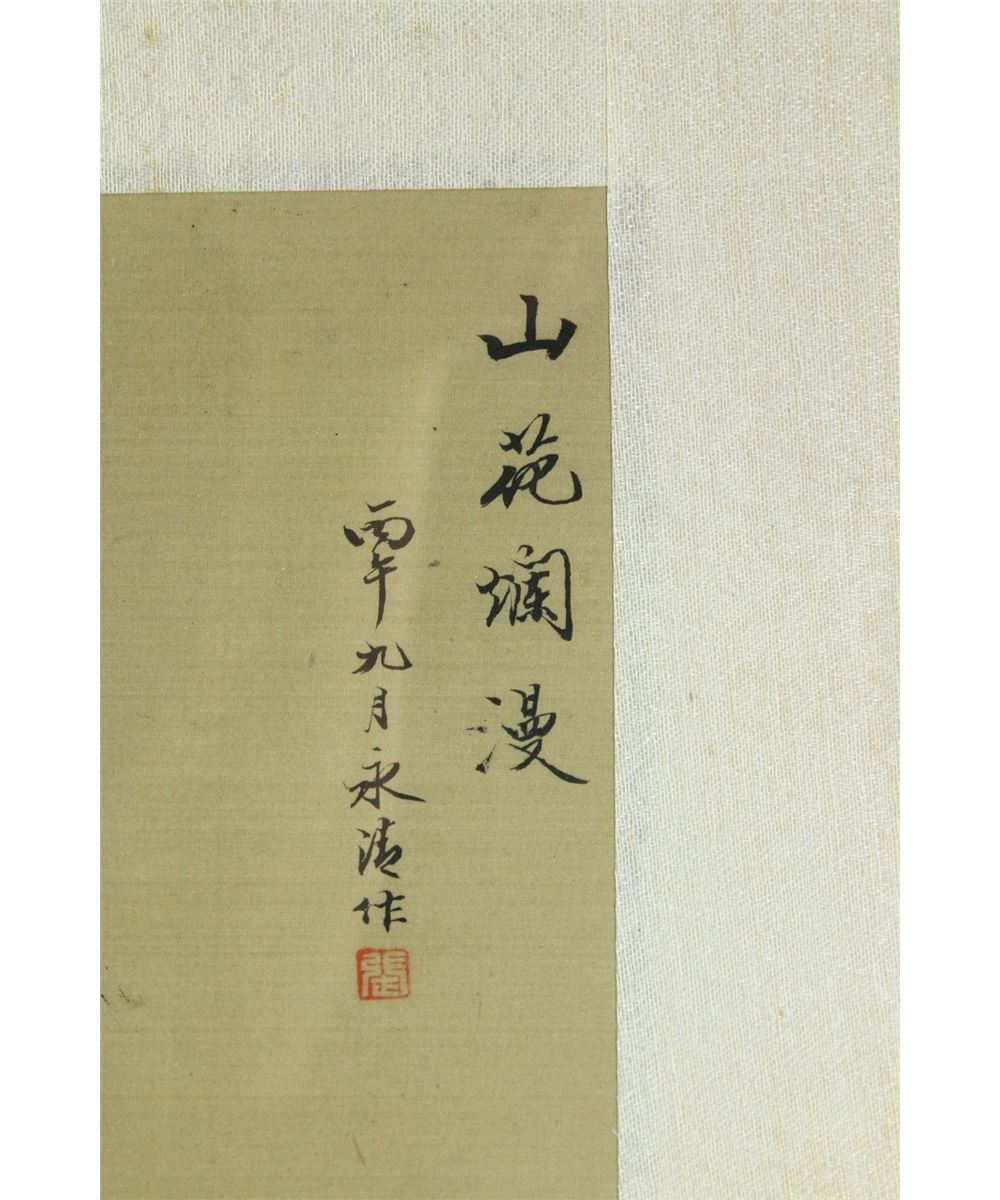 山花爛漫
丙午九月永清作